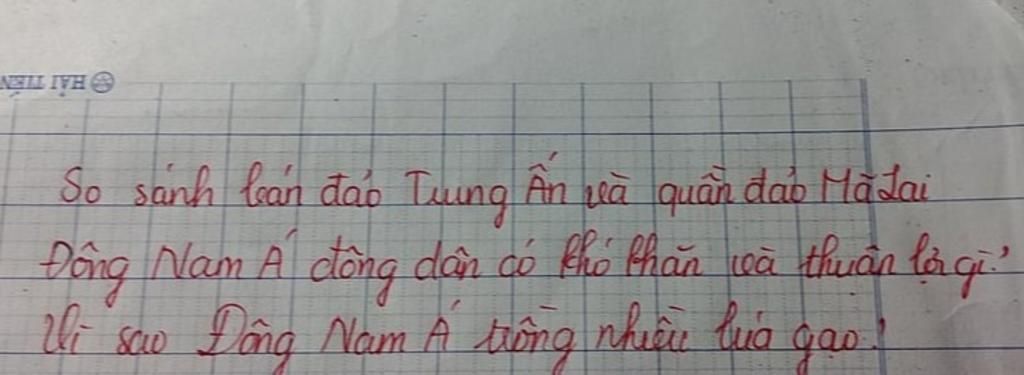 HẢI TIẾN
So sánh bán đảo Trung Ấn và quần đảo Mã Lai
Đông Nam Á đông dân có khó khăn và thuận lợi gì?
Vì sao Đông Nam Á trồng nhiều lúa gạo?